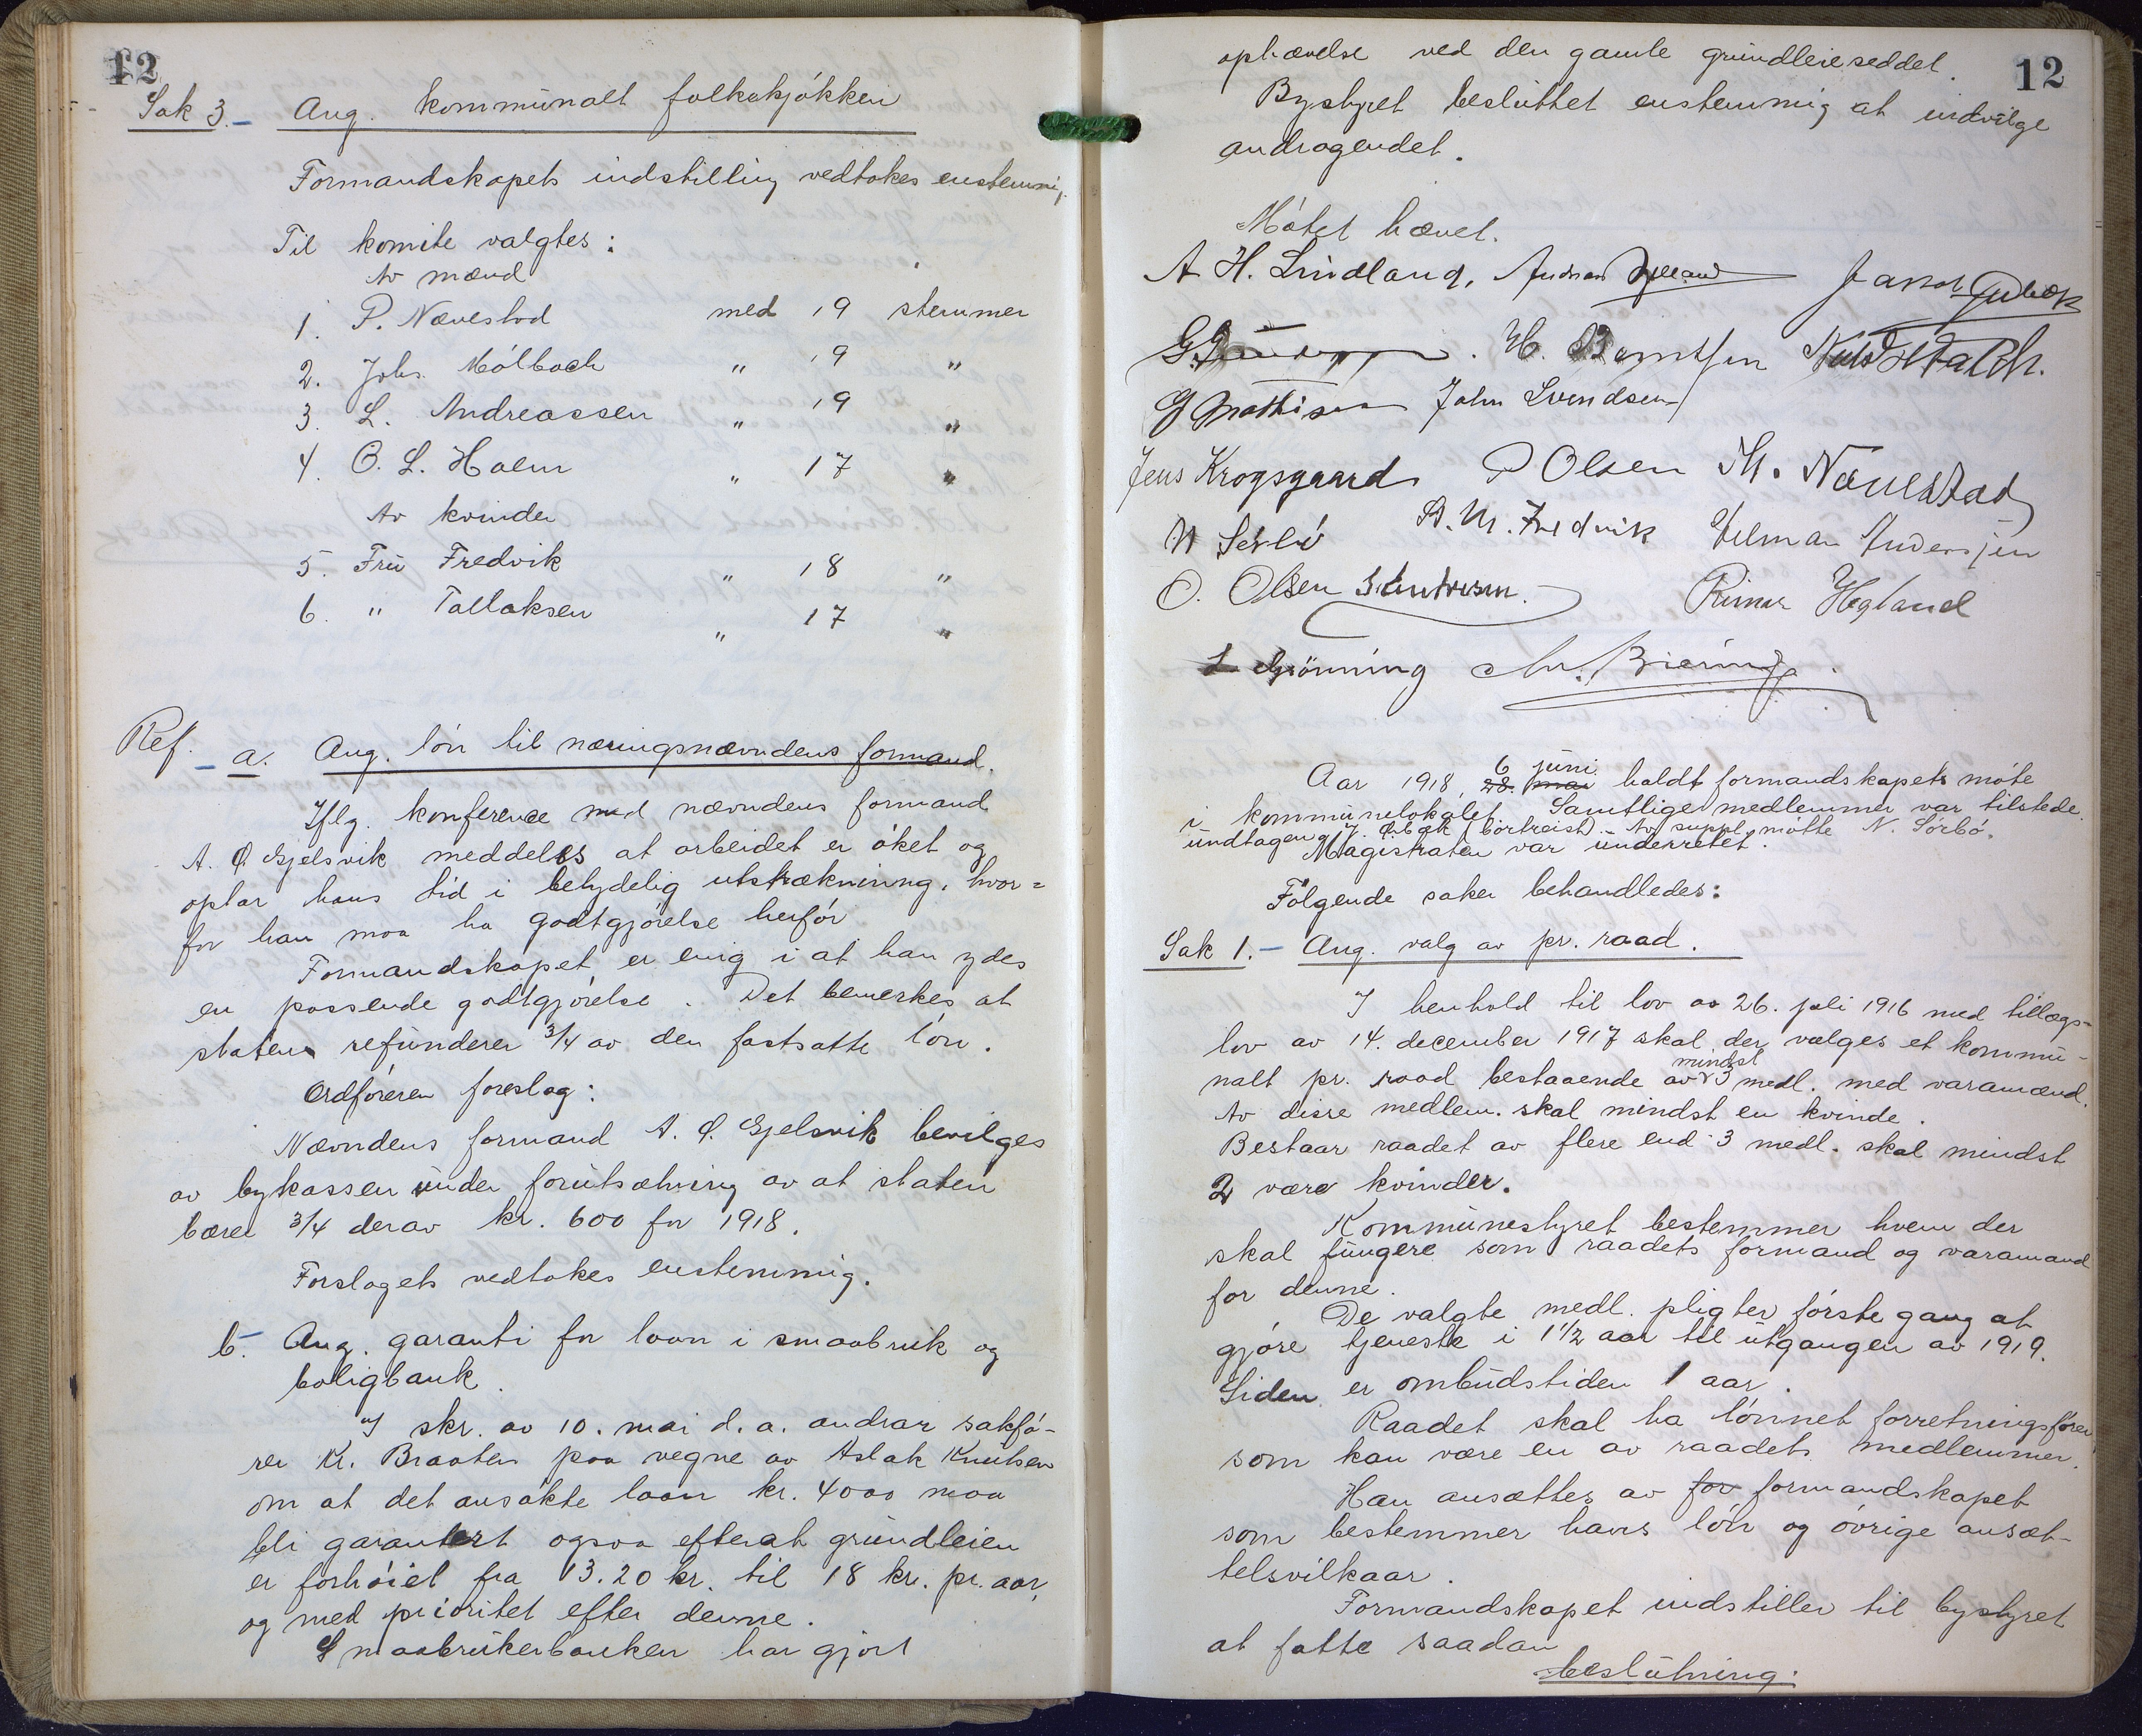 12
Sak 3.- Ang. kommunalt folkekjøkken
Formandskapets indstilling vedtokes enstemmig.
Til komite valgtes:
Av mænd
1. P. Nævestad med 19 stemmer
2. Johs. Mølbach " 19 "
3. L. Andreassen " 19 "
4. O. L. Holm " 17 "
Av kvinder
5. Fru Fredvik " 18 "
6. " Tallaksen " 17 "
Ref. - a. Ang. løn til næringsnævndens formand.
Iflg. konference med nævndens formand
A. Ø. Gjelsvik meddeles at arbeidet er øket og
optar hans tid i betydelig utstrækning, hvor=
for han maa ha godtgjørelse herfor
Formandskapet er enig i at han ydes
en passende godtgjørelse. Det bemerkes at
staten refunderer 3/4 av den fastsatte løn.
Ordføreren foreslog:
Nævndens formand A. Ø. Gjelsvik bevilges
av bykassen under forutsætning av at staten
bærer 3/4 derav kr. 600 for 1918.
Forslagets vedtokes enstemmig.
b.- Ang. garanti for laan i smaabruk og
boligbank.
I skr. av 10. mai d. a. andrar sakfø-
rer Kr. Braaten paa vegne av Aslak Knutsen
om at det ansøkte laan kr. 4000 maa
bli garantert ogsaa efterat grundleien
er forhøiet fra 13.20 kr. til 18 kr. pr. aar,
og med prioritet efter denne.
Smaabrukerbanken har gjort
12
ophævelse ved den gamle grundleieseddel.
Bystyret besluttet enstemmig at indvilge
andragendet.
Møtet hævet.
A H. Lindland, Andreas
Jakob
G. H. Berntsen
G Mathisen John Svendsen
Jens Krogsgaard P Olsen Th. Nævestad
N Sørbø A. M. Fredvik Hilmar Andersen
O. Olsen Rimar Hegland
L Grönning Chr. Biering.
Aar 1918, 28. mai 6 juni holdt formandskapets møte
i kommunelokalet. Samtlige medlemmer var tilstede.
undtagen J. Øbæk (bortreist). Av suppl. møtte N. Sørbø.
Magistraten var underrettet.
Følgende saker behandledes:
Sak 1.- Ang. valg av pr. raad.
I henhold til lov av 26. juli 1916 med tillægs-
lov av 14. december 1917 skal der vælges et kommu-
nalt pr. raad bestaaende av mindst 3 medl. med varamænd.
Av disse medlem. skal mindst en kvinde.
Bestaar raadet av flere end 3 medl. skal mindst
2 være kvinder.
Kommunestyret bestemmer hvem der
skal fungere som raadets formand og varamand
for denne.
De valgte medl. pligter første gang at
gjøre tjeneste i 1 1/2 aar til utgangen av 1919.
Siden er ombudstiden 1 aar.
Raadet skal ha lønnet forretningsfører
som kan være en av raadets medlemmer.
Han ansættes av for formandskapet
som bestemmer hans løn og øvrige ansæt-
telsvilkaar.
Formandskapet indstiller til bystyret
at fatte saadan
beslutning: